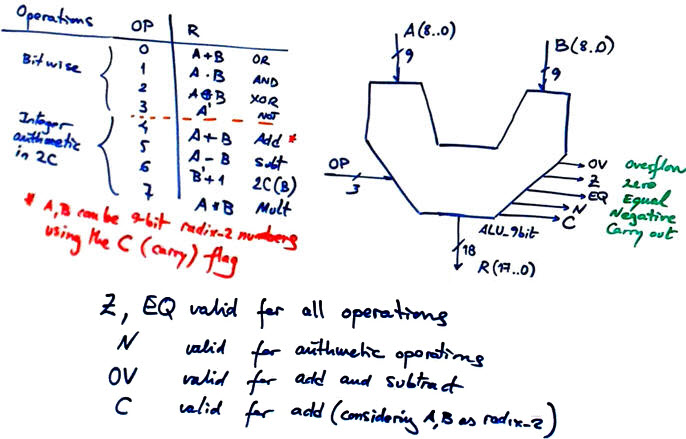 Operations OP R
Bitwise
0 A+B OR
1 A·B AND
2 A⊕B XOR
3 A' NOT
Integer
arithmetic
in 2C
4 A+B Add *
5 A-B subt
6 B'+1 2C(B)
7 A*B Mult
* A,B can be 9-bit radix-2 numbers
using the C (carry) flag
A(8..0)
9
B(8..0)
9
OP
3
OV overflow
Z zero
EQ Equal
N Negative
C Carry out
ALU_9bit
18
R(17..0)
Z, EQ valid for all operations
N valid for arithmetic operations
OV valid for add and subtract
C valid for add (considering A,B as radix-2)